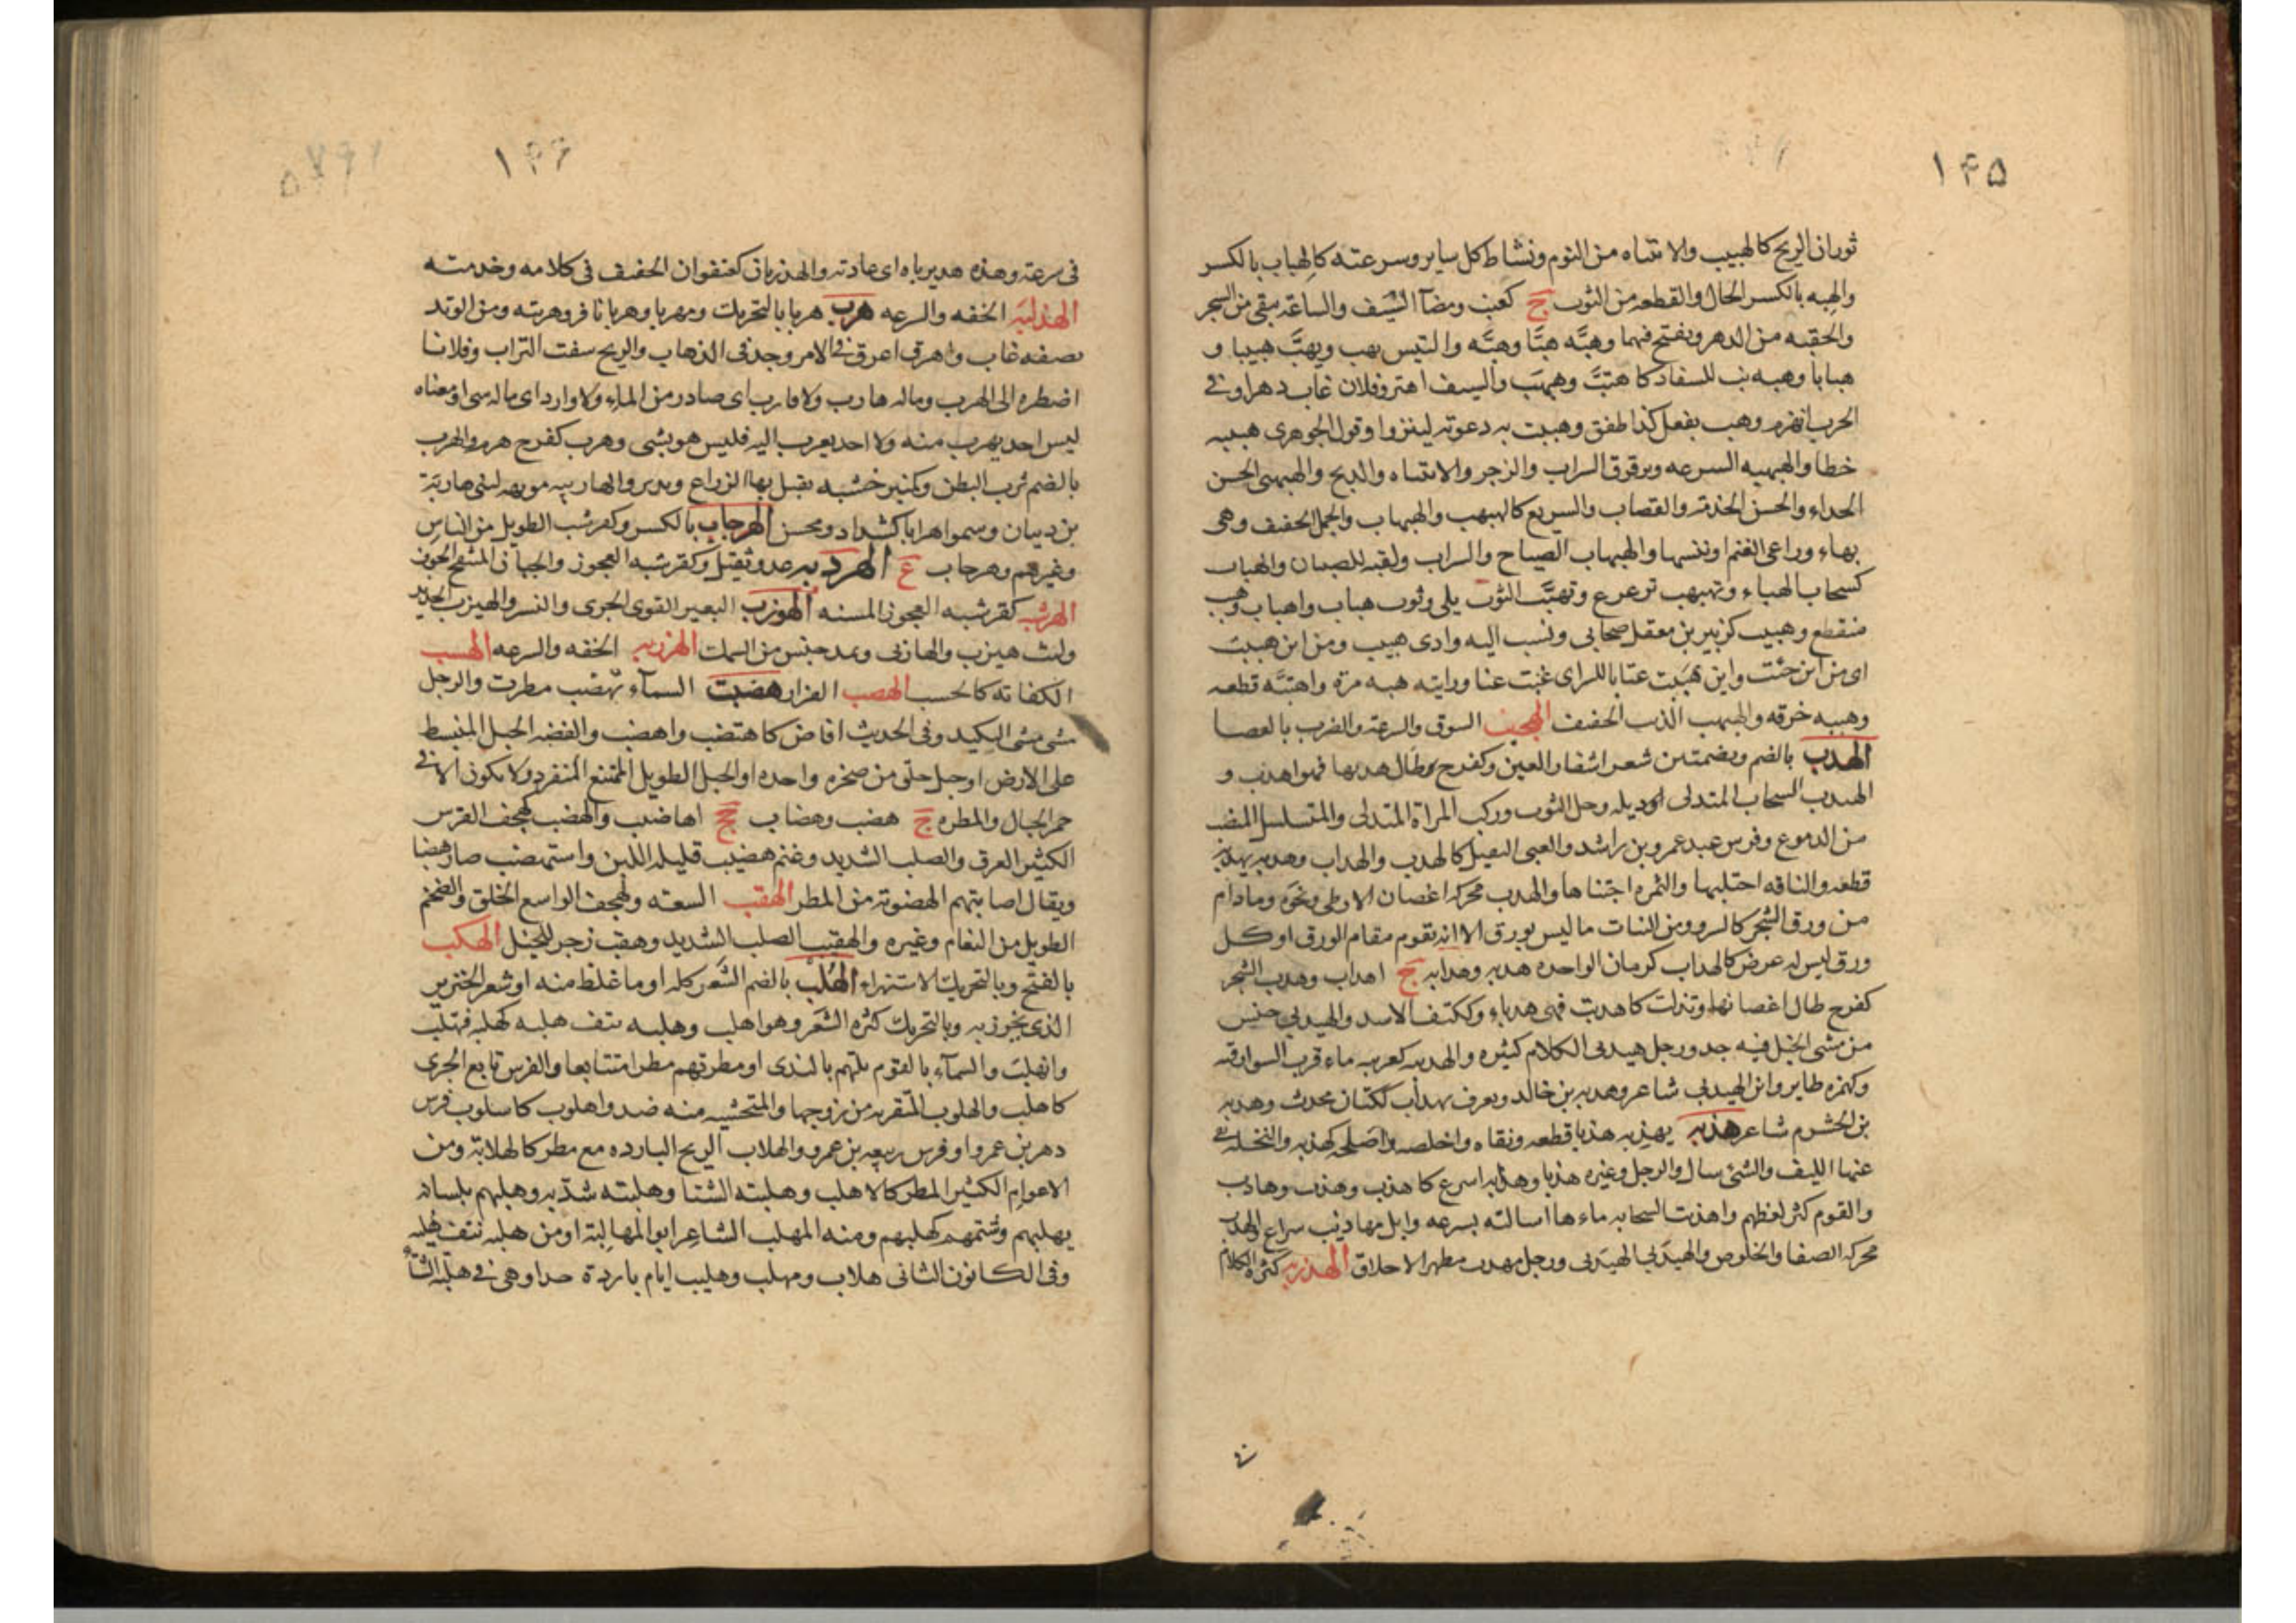 ١٤٥
ثوران الريح كالهبيب والانتباه من النوم ونشاط كل ساير وسرعته كالهباب بالكسر
والهبه بالكسر الحال والقطعه من الثوب ج كعنب ومضآ السَّيف والساعة يبقى من السحر
والحقبه من الدهر ويفتح فيهما وهبَّه هبَّا وهبَّه والتيس يهب ويهبَّ هبيبا و
هبابا وهبه نب للسفاد كاهتبَّ وهبهب والسيف اهتز وفلان غاب دهرا وفي
الحرب انهزم وهب يفعل كذا طفق وهببت به دعوته لينزوا وقول الجوهري هببته
خطا والهبهبه السرعه وترقرق السراب والزجر والانتباه والذبح والهبهبي الحسن
الحداء والحسن الخدمة والقصاب والسريع كالهبهب والهبهاب والجمل الخفيف وهي
بهاء وراعي الغنم او تيسها والهبهاب الصياح والسراب ولعبه للصبيان والهباب
كسحاب الهباء وتهبهب تزعزع وتهبَّب الثوب بلى وثوب هباب واهباب وهبب
منقطع وهبيب كزبير بن معقل صحابي ونسب اليه وادى هبيب ومن اين هببت
اى من اين جئت واين هَبِبت عنا باللراى غبت عنا ورايته هبه مرة واهتبَّه قطعه
وهببه خرقه والهبهب الذيب الخفيف الهجب السوق والسرعة والضرب بالعصا
الهدب بالضم وبضمتين شعر اشفار العين وكفرح طال هدبها فهو اهدب و
الهيدب السحاب المتدلى او ذيله وخمل الثوب وركب المراة المتدلى والمتسلسل المنصب
من الدموع وفرس عبد عمرو بن راشد والعيى الثقيل كالهدب والهداب وهدبه يهدبه
قطعه والناقه احتلبها والثمره اجتناها والهدب محركه اغصان الارطى ونحوه ومادام
من ورق الشجر كالسرو ومن النبات ما ليس بورق الا انه يقوم مقام الورق او كل
ورق ليس له عرض كالهداب كرمان الواحده هدبه وهدابه ج اهداب وهدب الشجر
كفرح طال اغصانها وتدلت كاهدبت فهى هدباء وككتف الاسد والهيدبى جنس
من مشى الخيل فيه جد ورجل هيدبى الكلام كثيره والهدبه كعربه ماء قرب السوارقيه
وكهمزه طاير وابن الهيدبى شاعر وهدبه بن خالد ويعرف بهداب ككتان محدث وهدبه
بن الخشرم شاعر هذبه يهذبه هذبا قطعه ونقاه واخلصه واصلحه كهذبه والنخله نقى
عنها الليف والشئ سال والرجل وغيره هذبا وهذابه اسرع كاهذب وهذب وهاذب
والقوم كثر لغطهم واهذبت السحابه ماءها اسالته بسرعه وابل مهاذيب سراع والهذب
محركه الصفا والخلوص والهيذبى الهيدبى ورجل مهذب مطهر الاخلاق الهذربه كثرة الكلام
١٤٦
في سرعة وهذه هذيرباه اى عادته والهذربان كعنفوان الخفيف في كلامه وخدمته
الهذلبة الخفه والسرعه هرب هربا بالتحريك ومهربا وهربانا فر وهربته ومن الوتد
نصفه غاب واهرق اغرق في الامر وجد في الذهاب والريح سفت التراب وفلانا
اضطره الى الهرب وماله هارب ولا قارب اى صادر من الماء ولا وارد اى ماله شى او معناه
ليس احد يهرب منه ولا احد يعرب اليه فليس هو بشى وهرب كفرح هرم والهرب
بالضم ثرب البطن وكمنبر خشبه يقبل بها الزراع ويدبر والهاربيه مويهه لبنى هاربة
بن ذبيان وسموا هرابا كشداد ومحسن الهرجاب بالكسر وكقرشب الطويل من الناس
وغيرهم وهرجاب ع الهردبه عدو ثقيل وكقرشبه العجوز والجبان المنتفخ الجوف
الهرشب كقرشبه العجوز المسنه الهوزب البعير القوى الجرى والنسر والهيزب الحديد
وليث هيزب والهازبى ويمد جنس من السمك الهزربه الخفه والسرعه الهسب
الكفاية كالحسب الهصب الفرار هضبت السمآء تهضب مطرت والرجل
مشى مشى البليد وفي الحديث افاض كاهتضب واهضب والهضبه الجبل المنبسط
على الارض او جبل خلق من صخره واحده او الجبل الطويل الممتنع المنفرد ولا يكون الا في
حمر الجبال والمطره ج هضب وهضاب جج اهاضب والهضب كهجف الفرس
الكثير العرق والصلب الشديد وغنم هضيب قليله اللبن واستهضب صار هضبا
ويقال اصابتهم الهضوبة من المطر الهقب السعه وكهجف الواسع الحلق والضخم
الطويل من النعام وغيره والهقبب الصلب الشديد وهقب زجر للخيل الهكب
بالفتح وبالتحريك الاستهزاء الهلب بالضم الشَعَر كله او ما غلظ منه او شعر الخنزير
الذى يخرز به وبالتحريك كثره الشَّعَر وهو اهلب وهلبه نتف هلبه كهلبه فتهلب
وانهلب والسمآء بالقوم بلتهم بالندى او مطرتهم مطرا متتابعا والفرس تابع الجرى
كاهلب والهلوب المتقربه من زوجها والمتجنبه منه ضد واهلوب كاسلوب فرس
دهر بن عمرو او فرس ربيعه بن عمرو والهلاب الريح البارده مع مطر كالهلابة ومن
الاعوام الكثير المطر كالاهلب وهلبته الشتا وهلبته شدّته وهلبهم بلسانه
يهلبهم وشتمهم كهلبهم ومنه المهلب الشاعر ابو المهالبة او من هلبه نتف هُلبه
وفي الكانون الثانى هلاب ومهلب وهليب ايام باردة جدا وهى في هلبة الشتآ